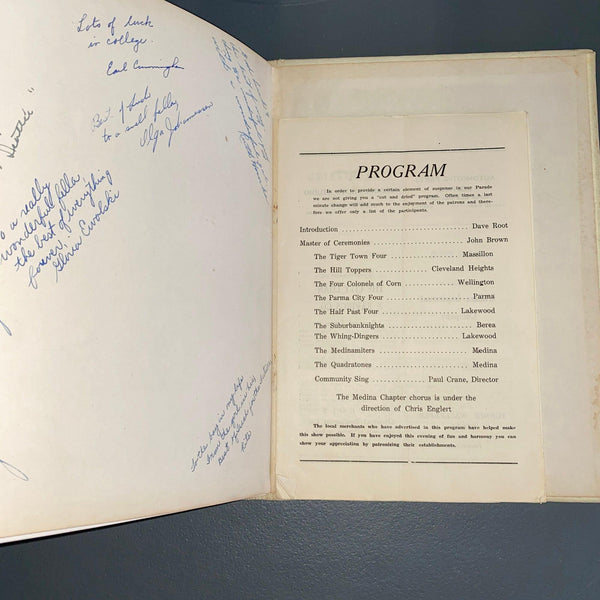 Lots of luck
in college.
Earl Cunningham
Best of luck
to a swell fella,
Olga
a really
wonderful fella
the best of everything
forever,
Gloria
PROGRAM
In order to provide a certain element of suspense in our Parade
we are not giving you a "cut and dried" program. Often times a last
minute change will add much to the enjoyment of the patrons and there-
fore we offer only a list of the participants.
Introduction ........ Dave Root
Master of Ceremonies ........ John Brown
The Tiger Town Four ........ Massillon
The Hill Toppers ........ Cleveland Heights
The Four Colonels of Corn ........ Wellington
The Parma City Four ........ Parma
The Half Past Four ........ Lakewood
The Suburbanknights ........ Berea
The Whing-Dingers ........ Lakewood
The Medinamiters ........ Medina
The Quadratones ........ Medina
Community Sing ........ Paul Crane, Director
The Medina Chapter chorus is under the
direction of Chris Englert
The local merchants who have advertised in this program have helped make
this show possible. If you have enjoyed this evening of fun and harmony you can
show your appreciation by patronizing their establishments.